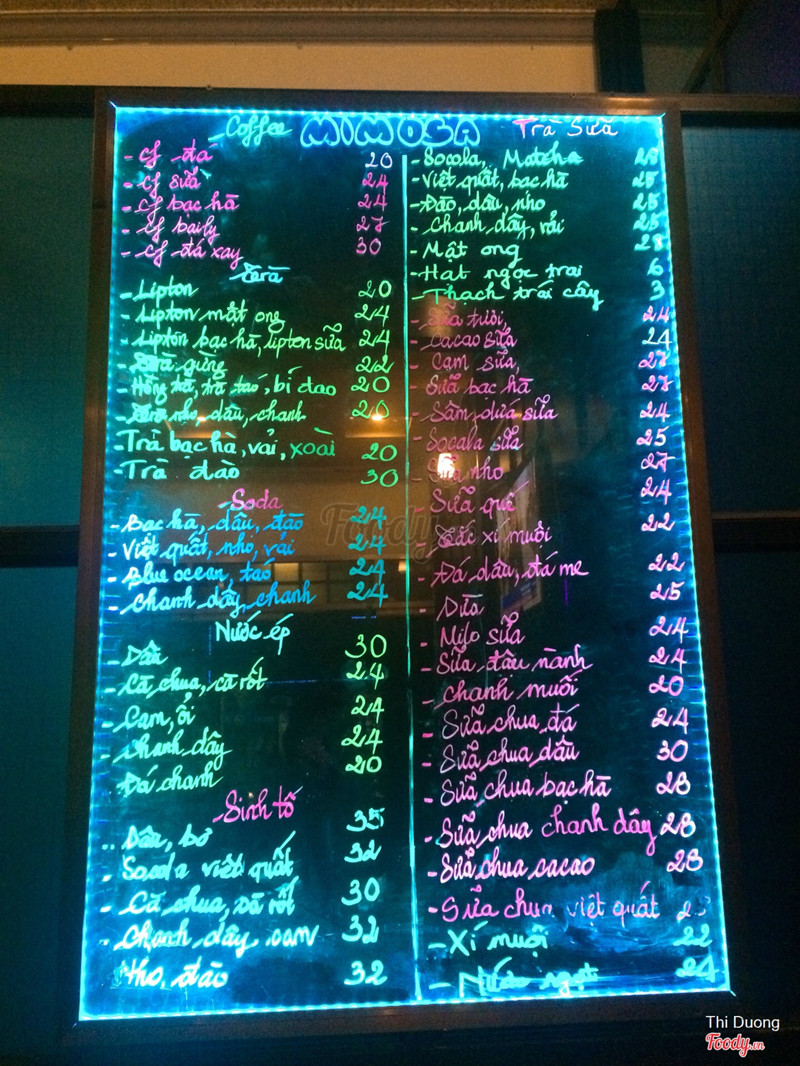 Coffee MIMOSA Trà Sữa
- cf đá 20
- cf sữa 24
- cf bạc hà 24
- cf baily 27
- cf đá xay 30
Trà
- Lipton 20
- Lipton mật ong 24
- Lipton bạc hà, lipton sữa 24
- Trà gừng 22
- Hồng trà, trà táo, bí đao 20
- Trà nho, dâu, chanh 20
- Trà bạc hà, vải, xoài 20
- Trà đào 30
Soda
- Bạc hà, dâu, đào 24
- Việt quất, nho, vải 24
- Blue ocean, táo 24
- chanh dây, chanh 24
Nước ép
- Dâu 30
- Cà chua, cà rốt 24
- Cam, ổi 24
- chanh dây 24
Đá chanh 20
Sinh tố
- Dâu, bơ 35
- Socola việt quất 32
- Cà chua, cà rốt 30
- Chanh dây, cam 32
Nho, đào 32
- Socola, Matcha 28
- Việt quất, bạc hà 25
- Đào, dâu, nho 25
- Chanh dây, vải 25
- Mật ong 28
- Hạt ngọc trai 6
- Thạch trái cây 3
- Sữa tươi, 24
- Cacao sữa 24
- Cam sữa, 27
- Sữa bạc hà 27
- Sâm dứa sữa 24
- Socola sữa 25
- Sữa nho 27
- Sữa quê 24
- Tắc xí muội 22
- Đá dâu, đá me 22
- Dừa 25
- Milo sữa 24
- Sữa đậu nành 24
- chanh muối 20
- Sữa chua đá 24
- Sữa chua dâu 30
- Sữa chua bạc hà 28
- Sữa chua chanh dây 28
- Sữa chua cacao 28
- Sữa chua việt quất
- Xí muội 22
- Nước ngọt 24
Foody
Thi Duong
Foody.vn